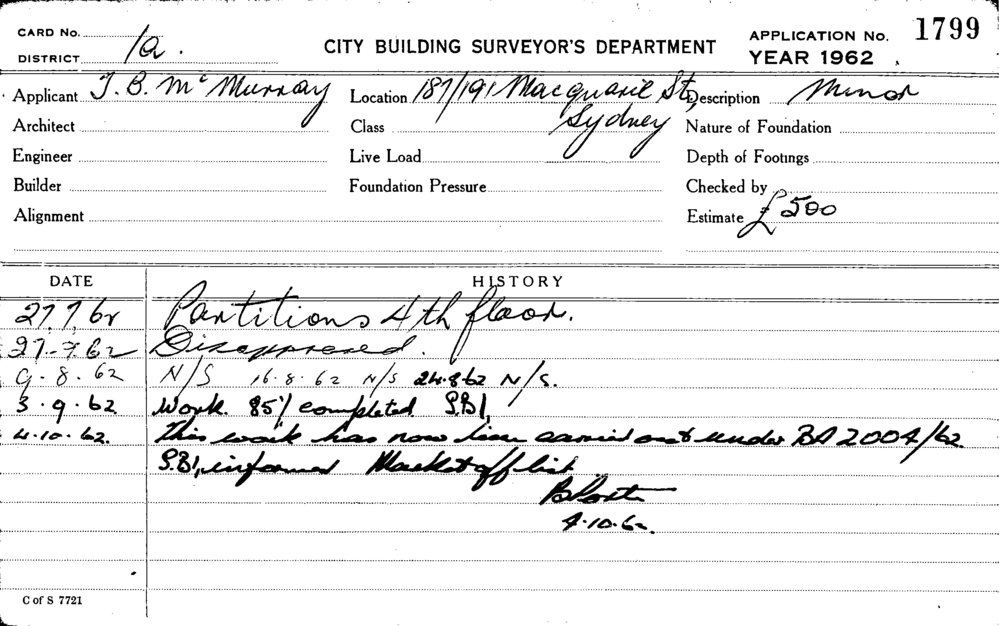 CARD No.
DISTRICT 1a.
CITY BUILDING SURVEYOR'S DEPARTMENT
APPLICATION No. 1799
YEAR 1962
Applicant J. B. McMurray
Location 187/191 Macquarie St, Sydney
Description Minor
Architect
Class
Nature of Foundation
Engineer
Live Load
Depth of Footings
Builder
Foundation Pressure
Checked by
Alignment
Estimate £500
DATE HISTORY
27.7.62 Partitions 4th floor.
27.7.62 Disapproved.
9.8.62 N/S 16.8.62 N/S 24.8.62 N/S.
3.9.62 Work 85% completed S.B1,
4.10.62. This work has now been carried out under BA 2004/62
S.B1, informed Marked off list
4.10.62.
C of S 7721